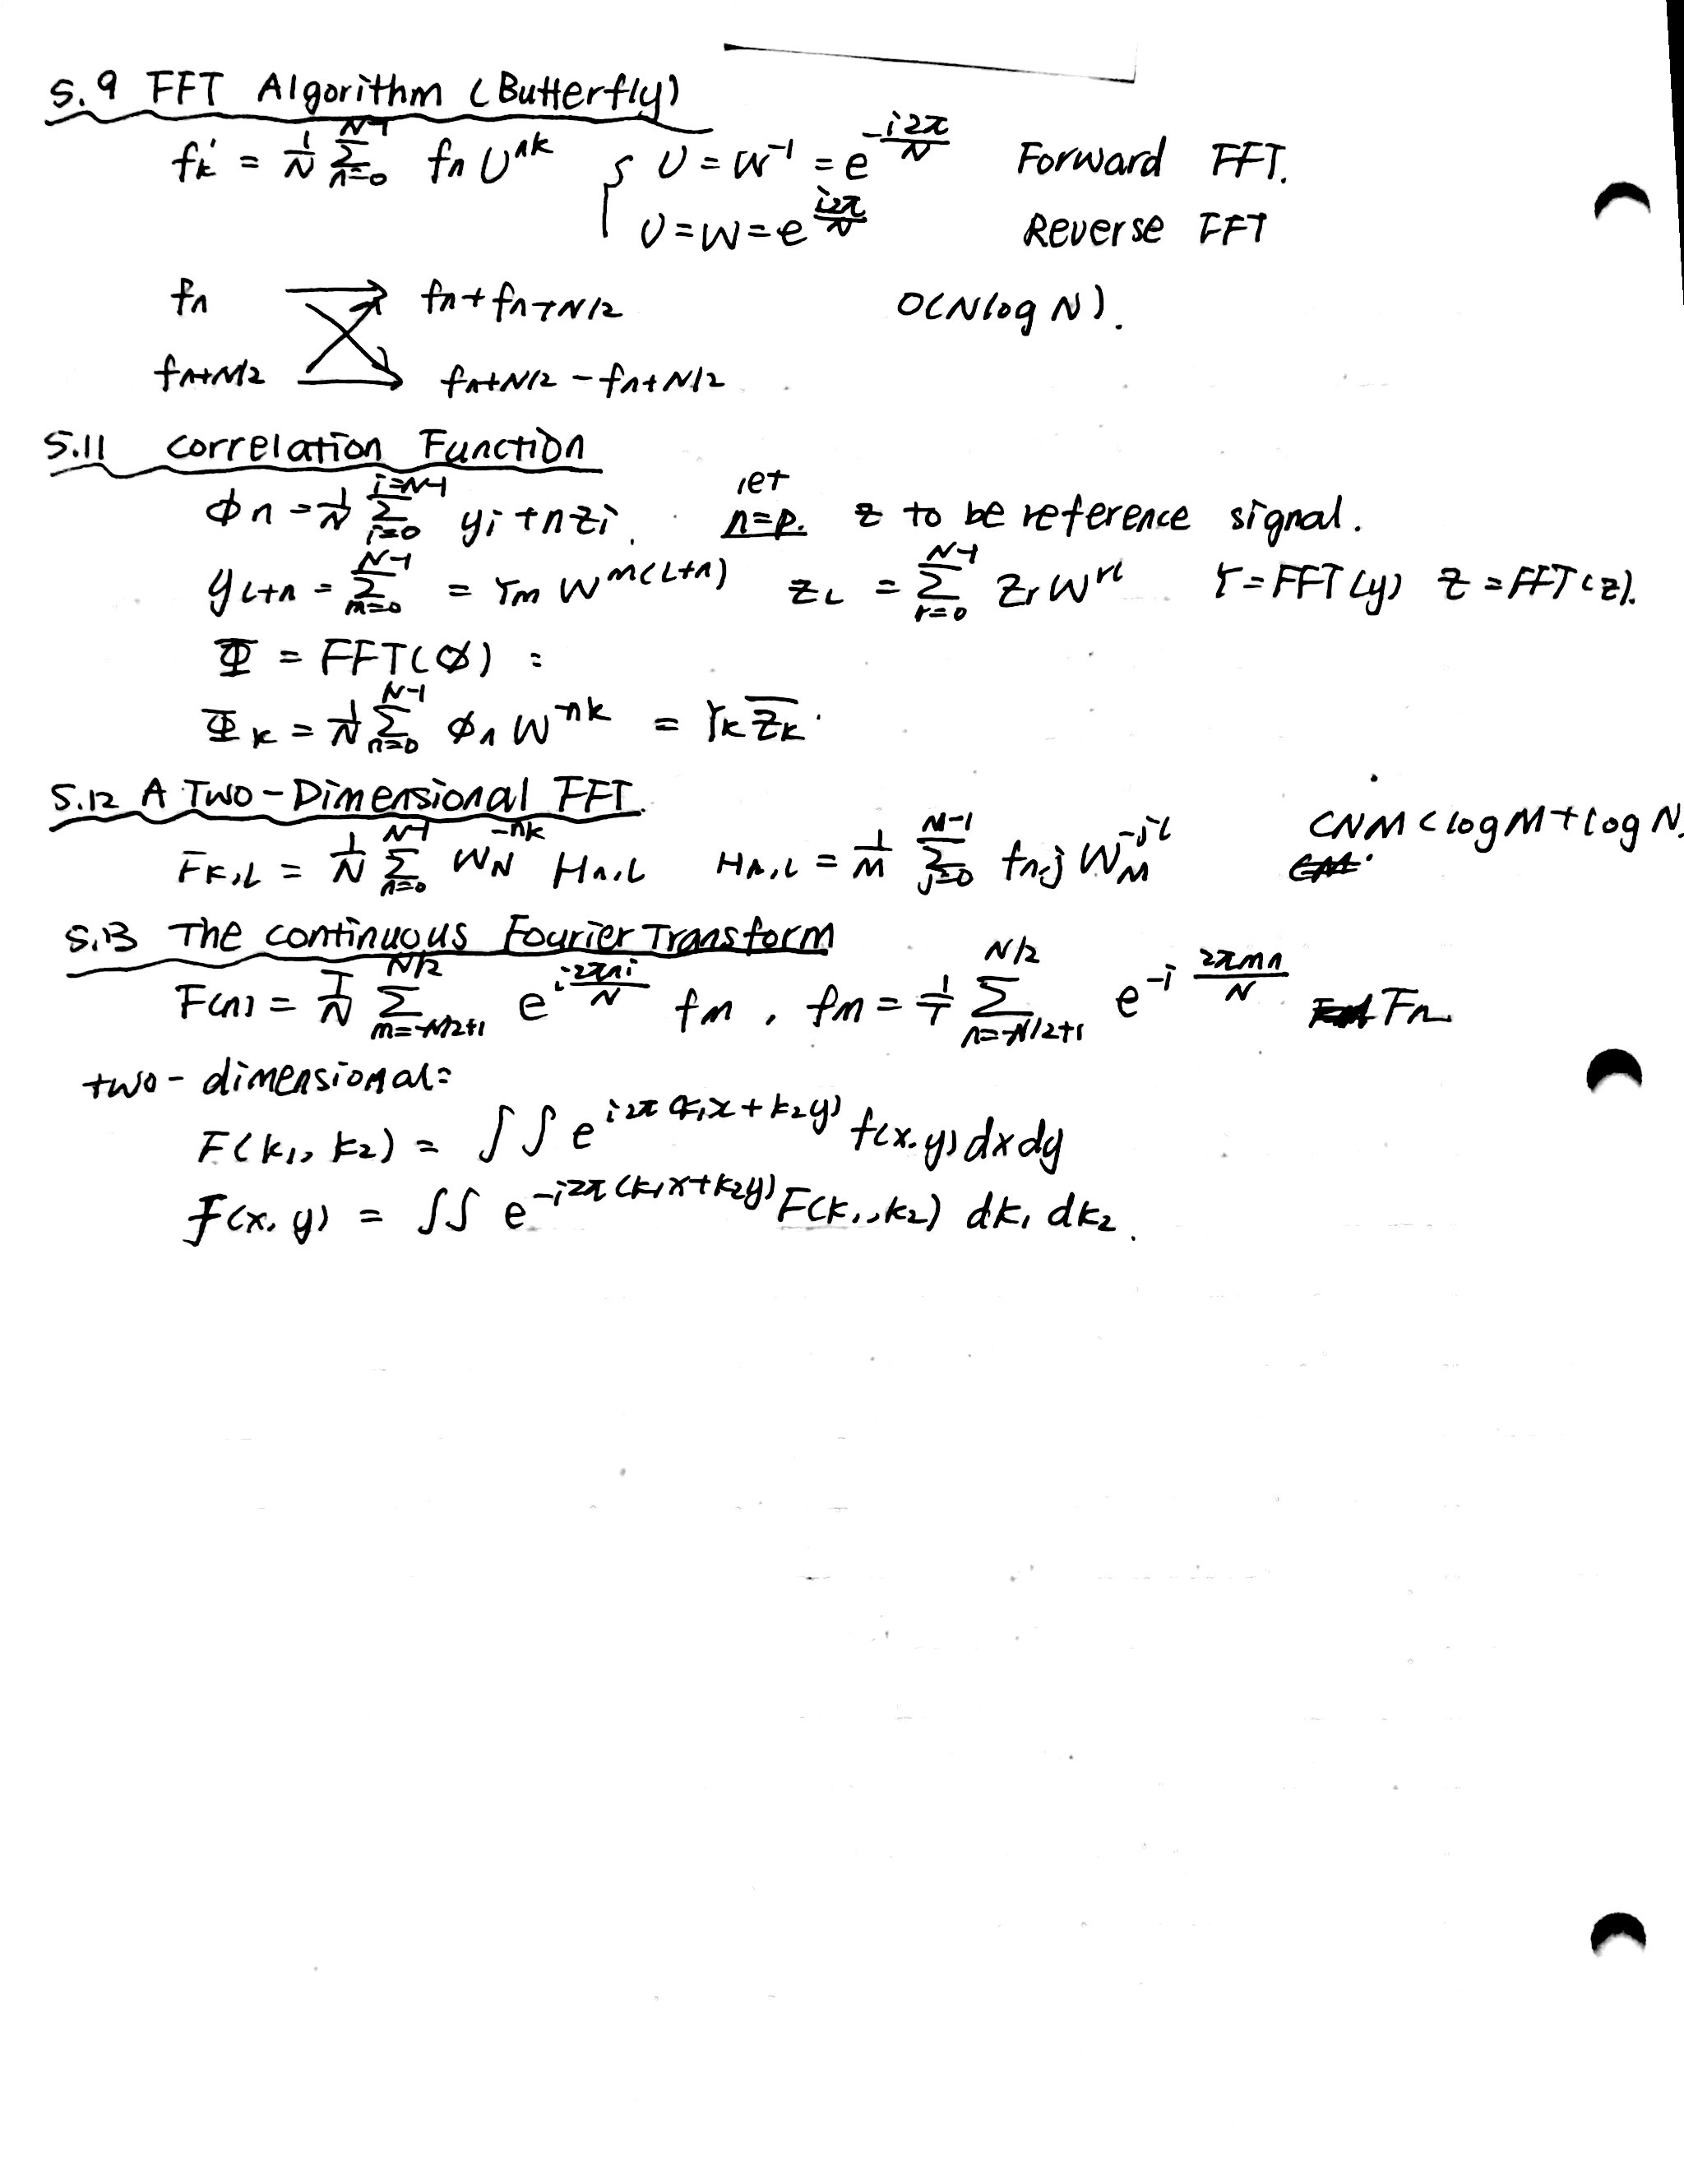 5.9 FFT Algorithm (Butterfly)
f'k = 1/N Σ_{n=0}^{N-1} fn U^{nk} { U = W^{-1} = e^{-i2π/N} Forward FFT.
U = W = e^{i2π/N} Reverse FFT
fn fn + fn+N/2 O(N log N).
fn+N/2 fn+N/2 - fn+N/2
5.11 Correlation Function
ϕn = 1/N Σ_{i=0}^{i=N-1} yi+nzi. let n=p. z to be reference signal.
yL+n = Σ_{m=0}^{N-1} = Ym W^{m(L+n)} zL = Σ_{r=0}^{N-1} Zr W^{rL} Y = FFT(y) Z = FFT(z).
Φ = FFT(ϕ) :
Φk = 1/N Σ_{n=0}^{N-1} ϕn W^{-nk} = Yk \overline{Zk}.
5.12 A Two-Dimensional FFT.
Fk,L = 1/N Σ_{n=0}^{N-1} WN^{-nk} Hn,L Hn,L = 1/M Σ_{j=0}^{M-1} fn,j WM^{-jL} CNM(logM+logN)
5.13 The continuous Fourier Transform
F(n) = T/N Σ_{m=-N/2+1}^{N/2} e^{i 2πni/N} fm, fm = 1/T Σ_{n=-N/2+1}^{N/2} e^{-i 2πmn/N} Fn
two-dimensional:
F(k1, k2) = ∫∫ e^{i2π(k1x+k2y)} f(x,y) dx dy
f(x, y) = ∫∫ e^{-i2π(k1x+k2y)} F(k1,k2) dk1 dk2.